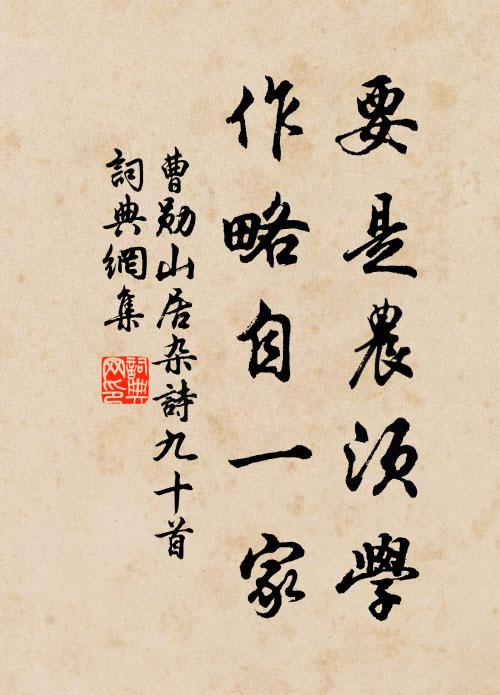 要是農須學
作略自一家
曹勛山居杂詩九十首
詞典網集
詞典网印